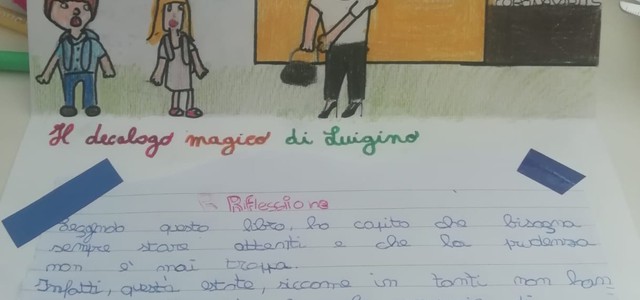 Il decalogo magico di Luigino
Riflessione
Leggendo questo libro, ho capito che bisogna
sempre stare attenti e che la prudenza
non è mai troppa.
Infatti, questa estate, siccome in tanti non han